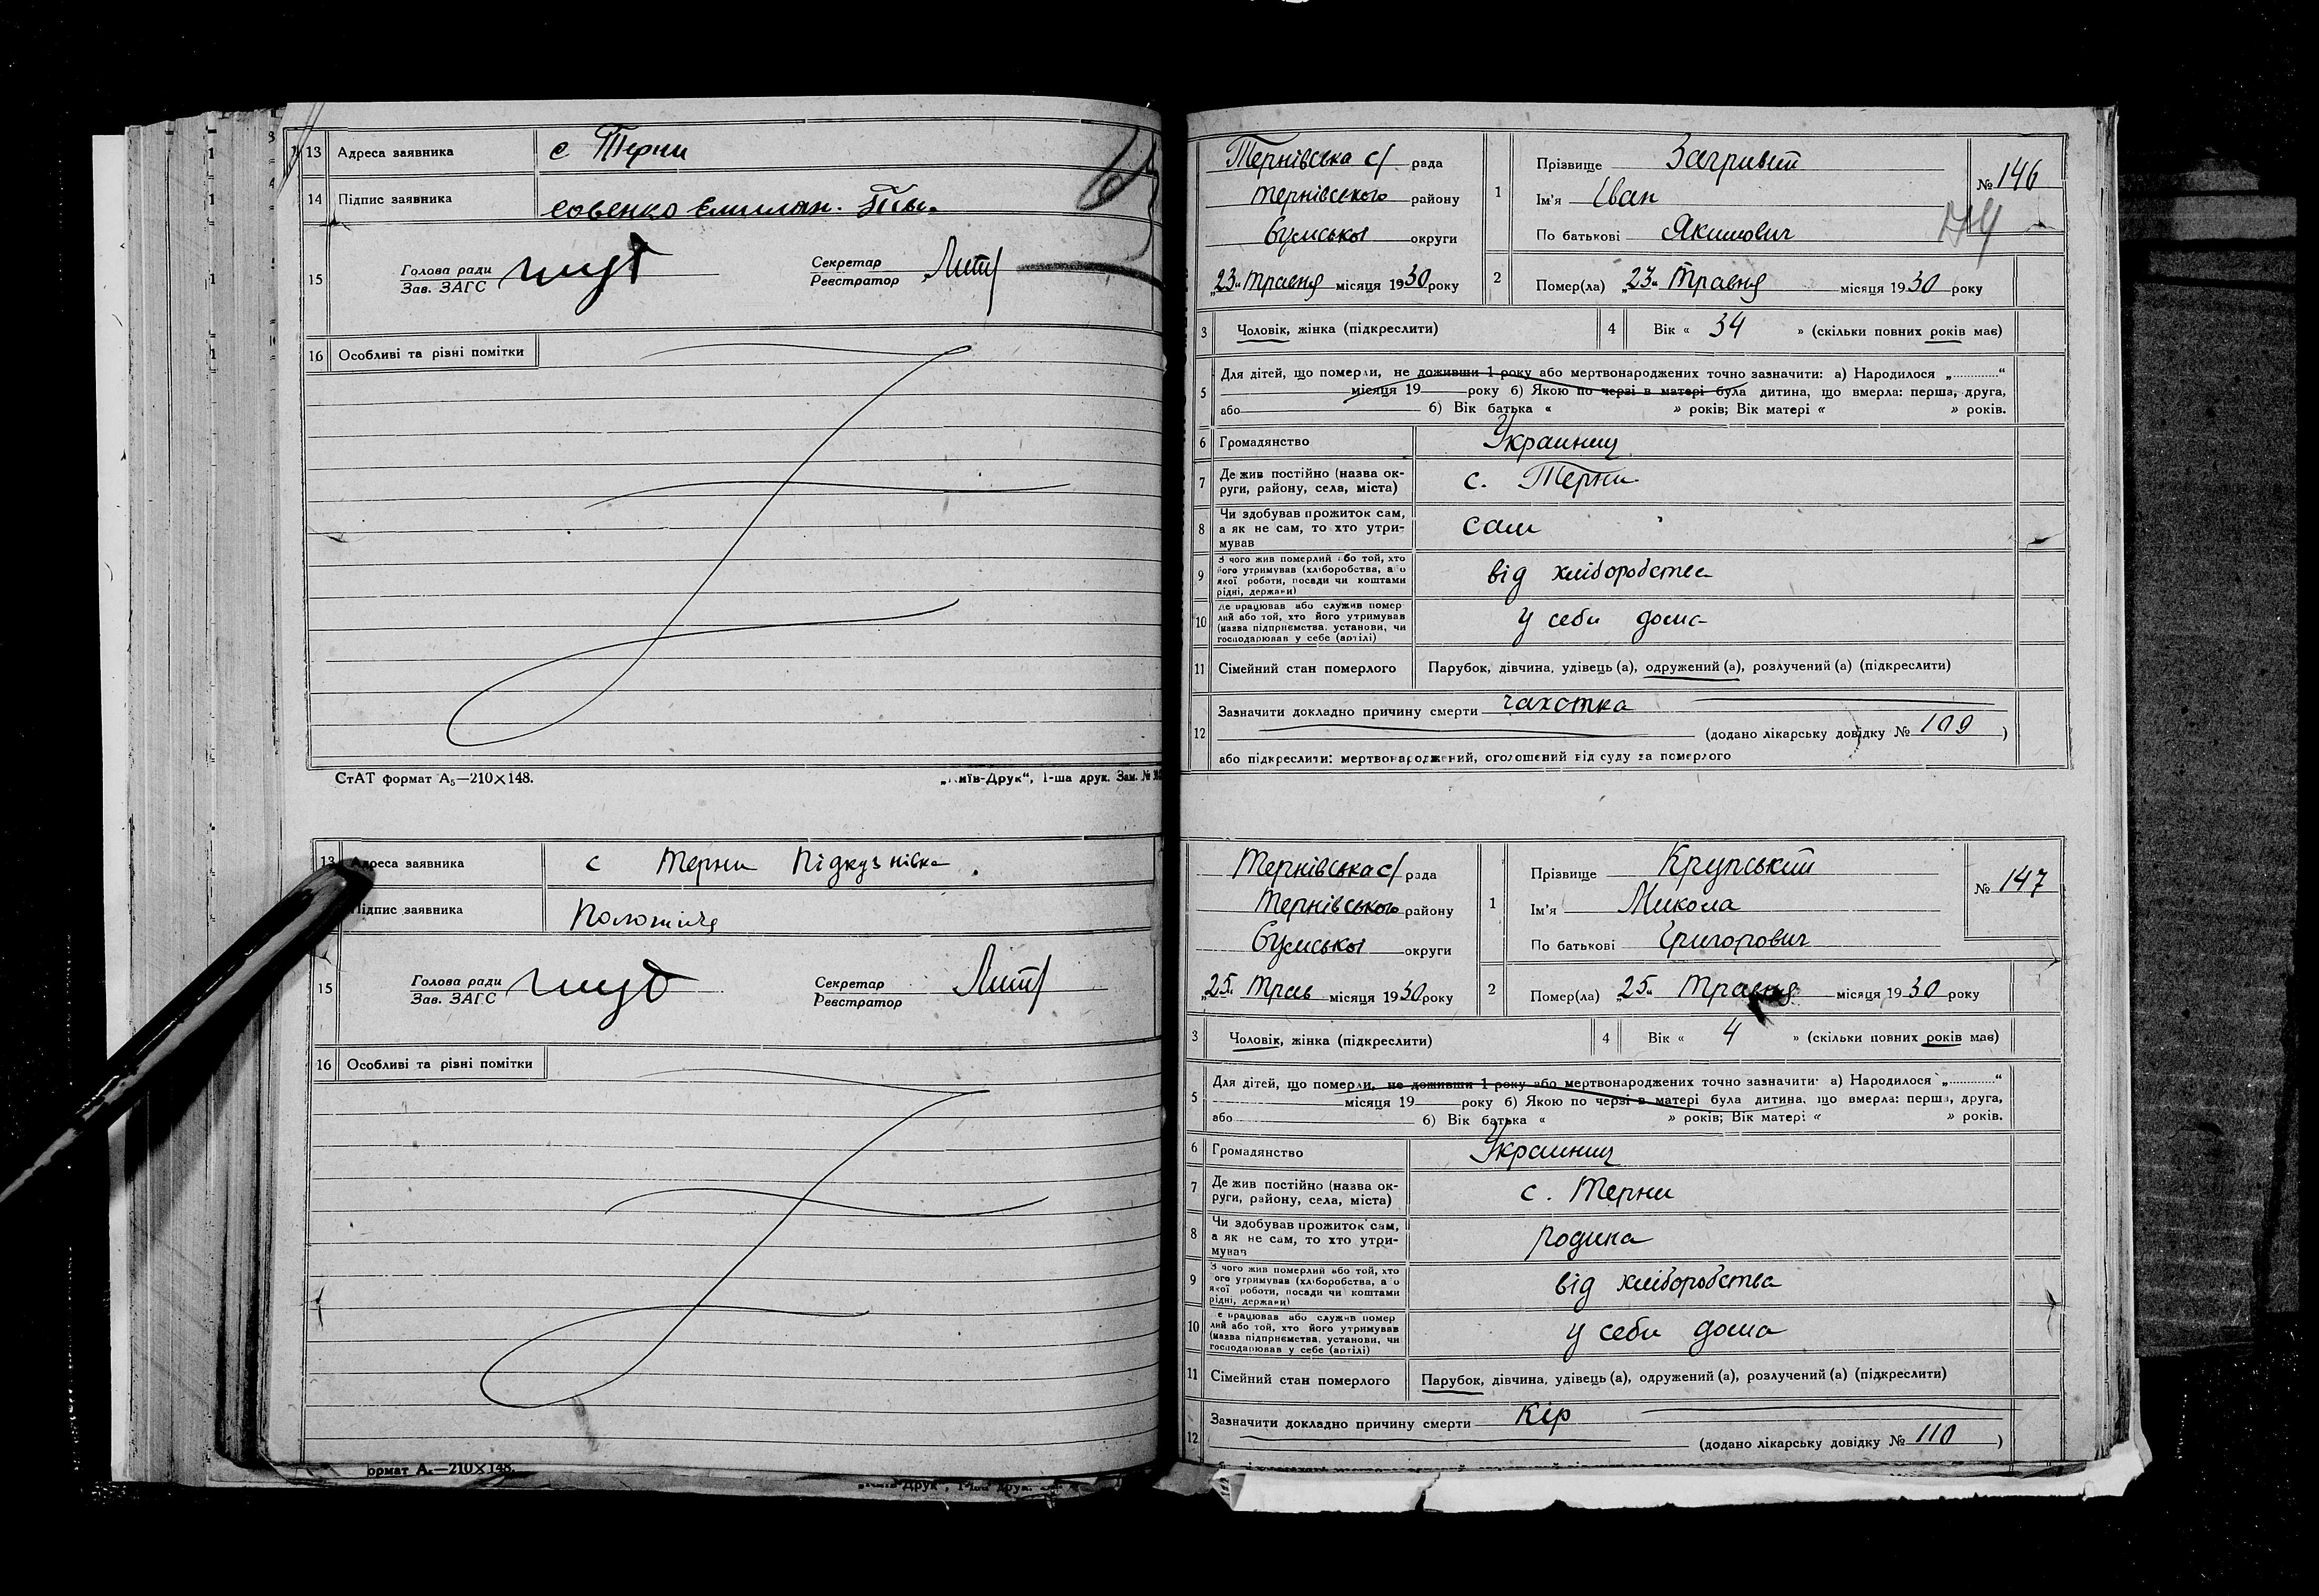 13 Адреса заявника с Терни
14 Підпис заявника Совенко
15 Голова ради Секретар
Зав. ЗАГС Реєстратор
16 Особливі та різні помітки
СтАТ формат А₅—210×148. „Київ-Друк“, 1-ша друк. Зам. №
13 Адреса заявника с Терни Підкузнівка
14 Підпис заявника
15 Голова ради Секретар
Зав. ЗАГС Реєстратор
16 Особливі та різні помітки
ормат А₅—210×148.
„Київ-Друк“, 1-ша друк.
Тернівська с/ рада
Тернівського району
Сумської округи
„23“ Травня місяця 1930 року
1 Прізвище Загривий
Ім'я Іван
По батькові Якимович
№ 146
2 Помер(ла) „23“ Травня місяця 1930 року
3 Чоловік, жінка (підкреслити) 4 Вік « 34 » (скільки повних років має)
5 Для дітей, що померли, не доживши 1 року або мертвонароджених точно зазначити: а) Народилося „............“
місяця 19 року б) Якою по черзі в матері була дитина, що вмерла: перша, друга,
або б) Вік батька « » років; Вік матері « » років.
6 Громадянство Украинец
7 Де жив постійно (назва ок-
руги, району, села, міста) с. Терни
8 Чи здобував прожиток сам,
а як не сам, то хто утри-
мував сам
9 З чого жив померлий або той, хто
його утримував (хліборобства, або
якої роботи, посади чи коштами
рідні, держави) від хліборобства
10 Де працював або служив помер
лий або той, хто його утримував
(назва підприємства, установи, чи
господарював у себе (артілі) у себи дома
11 Сімейний стан померлого Парубок, дівчина, удівець (а), одружений (а), розлучений (а) (підкреслити)
12 Зазначити докладно причину смерти чахотка
(додано лікарську довідку № 109 )
або підкреслити: мертвонароджений, оголошений від суду за померлого
Тернівська с/ рада
Тернівського району
Сумської округи
„25“ Трав місяця 1930 року
1 Прізвище Крупський
Ім'я Микола
По батькові Григорович
№ 147
2 Помер(ла) „25“ Травня місяця 1930 року
3 Чоловік, жінка (підкреслити) 4 Вік « 4 » (скільки повних років має)
5 Для дітей, що померли, не доживши 1 року або мертвонароджених точно зазначити: а) Народилося „............“
місяця 19 року б) Якою по черзі в матері була дитина, що вмерла: перша, друга,
або б) Вік батька « » років; Вік матері « » років.
6 Громадянство Украинец
7 Де жив постійно (назва ок-
руги, району, села, міста) с. Терни
8 Чи здобував прожиток сам,
а як не сам, то хто утри-
мував родина
9 З чого жив померлий або той, хто
його утримував (хліборобства, або
якої роботи, посади чи коштами
рідні, держави) від хліборобства
10 Де працював або служив помер
лий або той, хто його утримував
(назва підприємства, установи, чи
господарював у себе (артілі) у себи дома
11 Сімейний стан померлого Парубок, дівчина, удівець (а), одружений (а), розлучений (а) (підкреслити)
12 Зазначити докладно причину смерти Кір
(додано лікарську довідку № 110 )